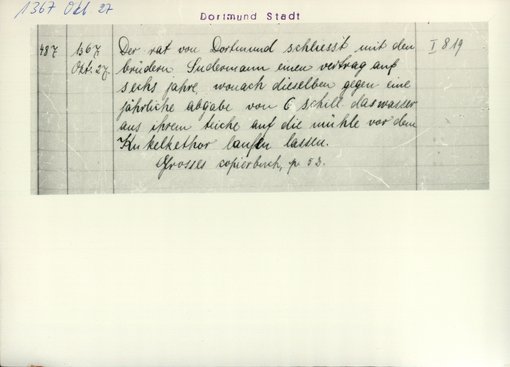 1367 Okt 27
Dortmund Stadt
487 1367 Okt. 27 Der rat von Dortmund schliesst mit den I 819
brüdern Sudermann einen vertrag auf
sechs jahre, wonach dieselben gegen eine
jährliche abgabe von 6 schill. das wasser
aus ihrem teiche auf die mühle vor dem
Kukelkethor laufen lassen.
Grosses copierbuch, p. 53.